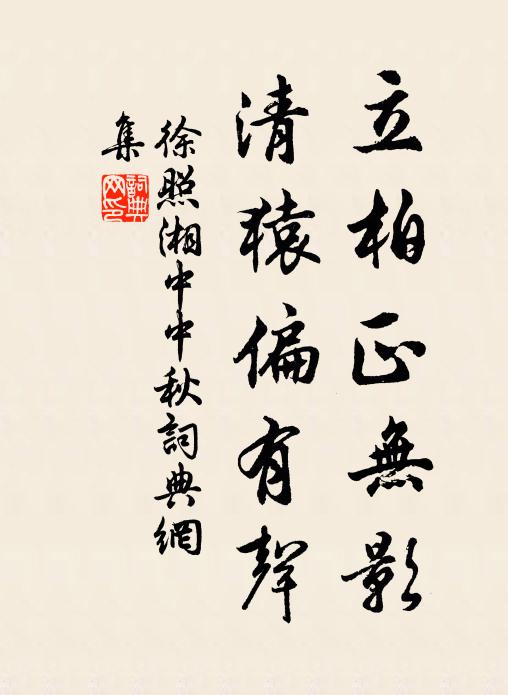 立柏正無影
清猿偏有聲
徐照湘中中秋詞典網
集
詞典
网印